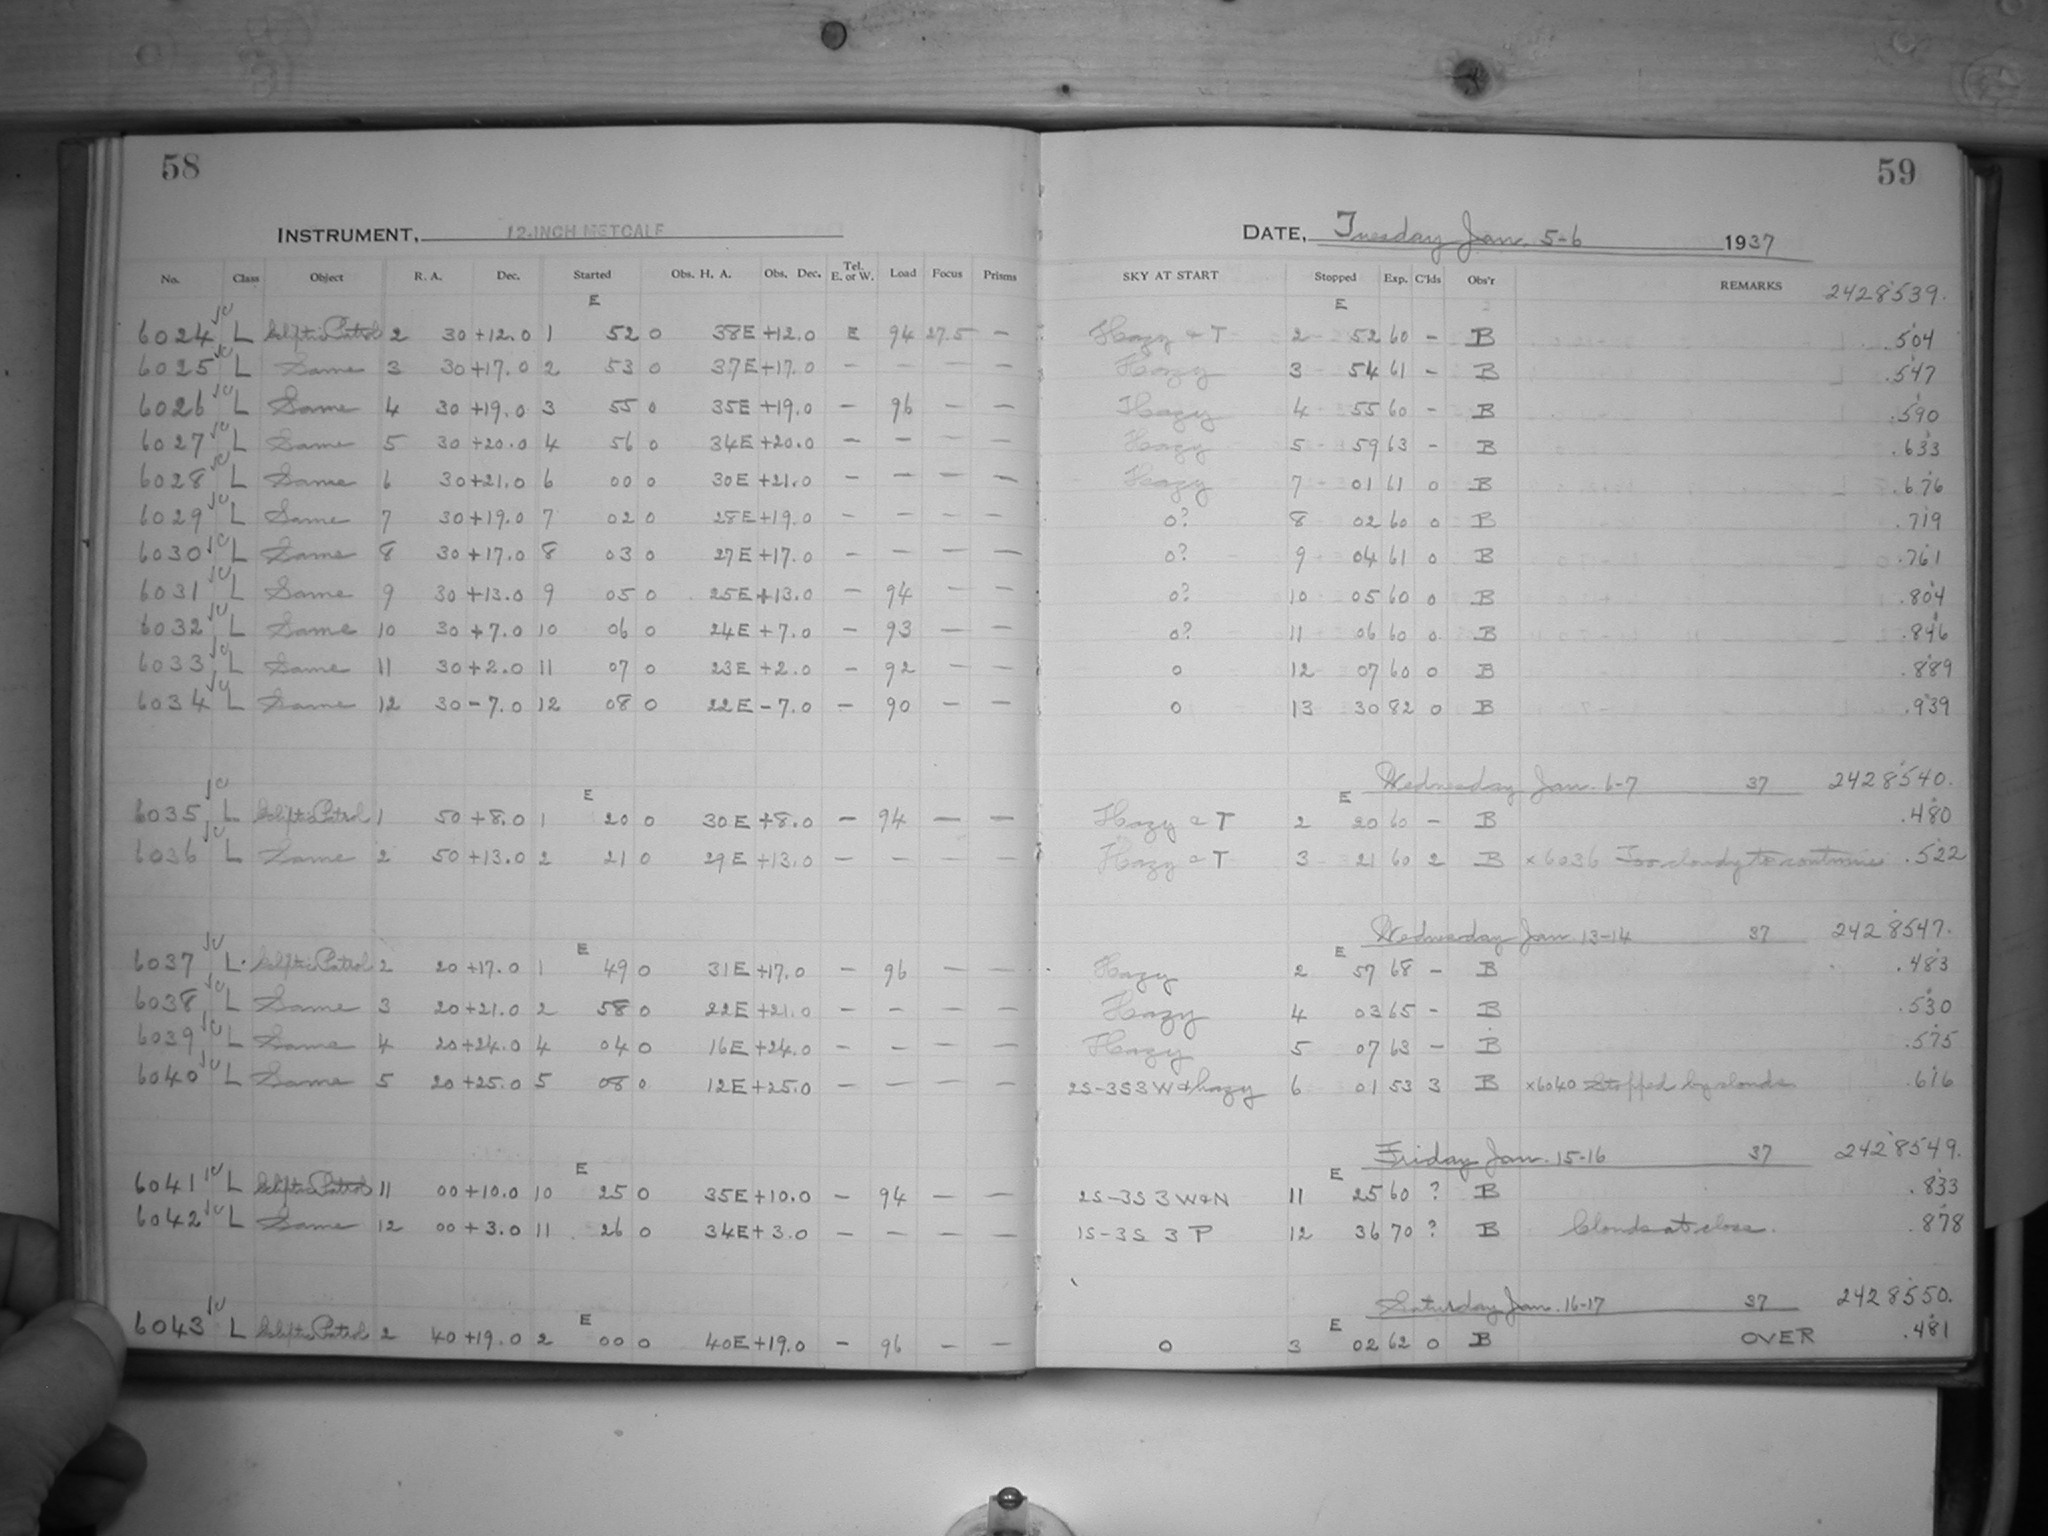 58
59
INSTRUMENT, 12-INCH METCALF
DATE, Tuesday Jan. 5-6 1937
No. Class Object R. A. Dec. Started Obs. H. A. Obs. Dec. Tel. E. or W. Load Focus Prisms SKY AT START Stopped Exp. C'lds Obs'r REMARKS 2428539.
E E
6024 L Ecliptic Patrol 2 30 +12.0 1 52 0 38E +12.0 E 94 27.5 — Hazy & T 2 52 60 - B .504
6025 L Same 3 30 +17.0 2 53 0 37E +17.0 — — — — Hazy 3 54 61 - B .547
6026 L Same 4 30 +19.0 3 55 0 35E +19.0 — 96 — — Hazy 4 55 60 - B .590
6027 L Same 5 30 +20.0 4 56 0 34E +20.0 — — — — Hazy 5 59 63 - B .633
6028 L Same 6 30 +21.0 6 00 0 30E +21.0 — — — — Hazy 7 01 61 0 B .676
6029 L Same 7 30 +19.0 7 02 0 28E +19.0 — — — — 0? 8 02 60 0 B .719
6030 L Same 8 30 +17.0 8 03 0 27E +17.0 — — — — 0? 9 04 61 0 B .761
6031 L Same 9 30 +13.0 9 05 0 25E +13.0 — 94 — — 0? 10 05 60 0 B .804
6032 L Same 10 30 +7.0 10 06 0 24E +7.0 — 93 — — 0? 11 06 60 0 B .846
6033 L Same 11 30 +2.0 11 07 0 23E +2.0 — 92 — — 0 12 07 60 0 B .889
6034 L Same 12 30 -7.0 12 08 0 22E -7.0 — 90 — — 0 13 30 82 0 B .939
E E Wednesday Jan. 6-7 37 2428540.
6035 L Ecliptic Patrol 1 50 +8.0 1 20 0 30E +8.0 — 94 — — Hazy & T 2 20 60 - B .480
6036 L Same 2 50 +13.0 2 21 0 29E +13.0 — — — — Hazy & T 3 21 60 2 B x6036 Too cloudy to continue .522
E E Wednesday Jan 13-14 37 2428547.
6037 L Ecliptic Patrol 2 20 +17.0 1 49 0 31E +17.0 — 96 — — Hazy 2 57 68 - B .483
6038 L Same 3 20 +21.0 2 58 0 22E +21.0 — — — — Hazy 4 03 65 - B .530
6039 L Same 4 20 +24.0 4 04 0 16E +24.0 — — — — Hazy 5 07 63 - B .575
6040 L Same 5 20 +25.0 5 08 0 12E +25.0 — — — — 2S-3S 3 W & hazy 6 01 53 3 B x6040 Stopped by clouds .616
E E Friday Jan. 15-16 37 2428549.
6041 L Ecliptic Patrol 11 00 +10.0 10 25 0 35E +10.0 — 94 — — 2S-3S 3 W&N 11 25 60 ? B .833
6042 L Same 12 00 +3.0 11 26 0 34E +3.0 — — — — 1S-3S 3 P 12 36 70 ? B Clouds at close. .878
E E Saturday Jan. 16-17 37 2428550.
6043 L Ecliptic Patrol 2 40 +19.0 2 00 0 40E +19.0 — 96 — — 0 3 02 62 0 B OVER .481